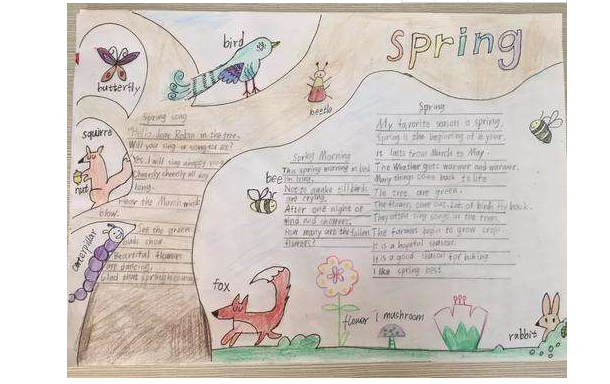 Spring
bird
butterfly
beetle
squirre
nut
caterpillar
bee
fox
flower
mushroom
rabbit
Spring song
"Hello, dear Robin in the tree.
Will you sing a song for me?
"Yes, I will sing
Cheerily cheerily all day
long.
Hear the March wind
blow.
See the green
buds show.
Beautiful flower
are dancing.
Glad that spring is coming
Spring Morning
This spring morning in bed
I'm lying,
Not to awake till birds
are crying.
After one night of
wind and showers,
How many are the fallen
flowers?
Spring
My favorite season is spring.
Spring is the beginning of a year.
It lasts from March to May.
The Weather gets warmer and warmer.
Many things come back to life
The tree are green.
The flowers come out. Lots of birds fly back.
They often sing songs in the trees.
The farmers begin to grow crops.
It is a hopeful season.
It is a good season for hiking
I like spring best.